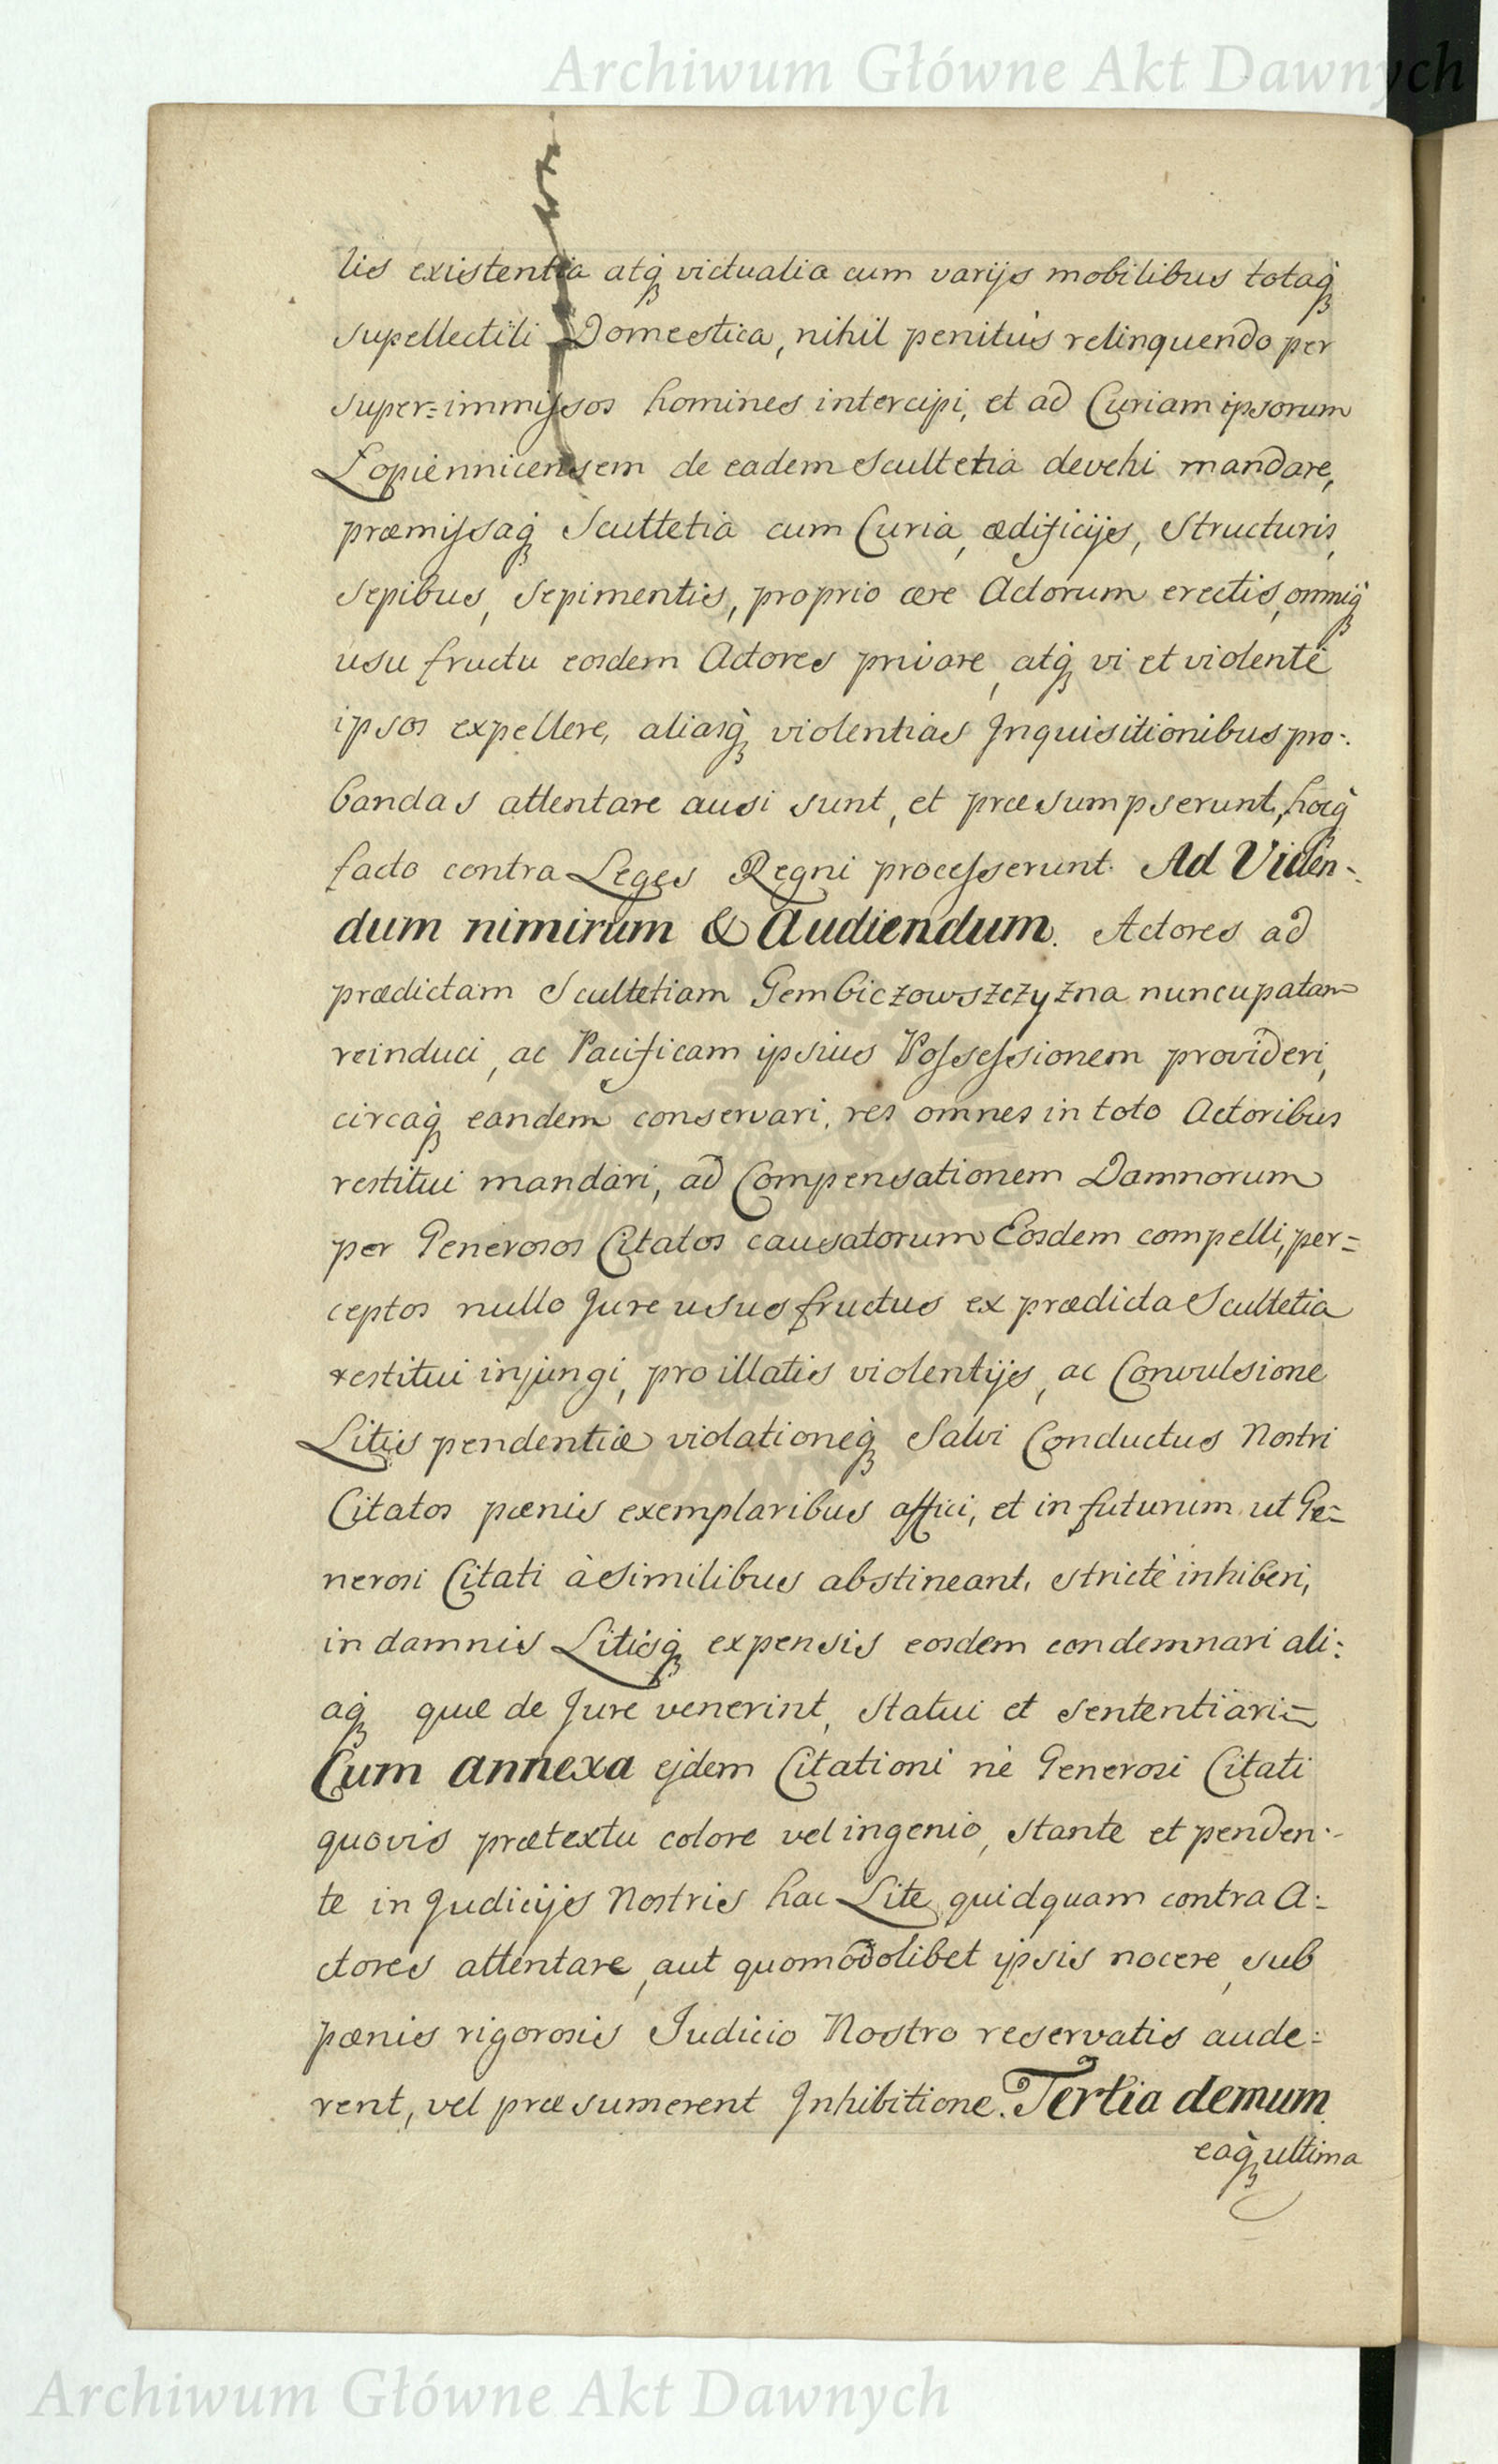 Archiwum Główne Akt Dawnych
lis existentia atq́ victualia cum varijs mobilibus totaq́
supellectili Domestica, nihil penitús relinquendo per
super=immissos homines intercipi, et ad Curiam ipsorum
Lopiennicensem de eadem Scultetia devehi mandare,
præmissaq́ Scultetia cum Curia, ædificijs, Structuris,
Sepibus, Sepimentis, proprio ære Actorum erectis, omniq́
usu fructu eosdem Actores privare, atq́ vi et violentè
ipsos expellere, aliasq́ violentias Inquisitionibus pro-
bandas attentare ausi sunt, et præsumpserunt, hocq́
facto contra Leges Regni processerunt. Ad Viden-
dum nimirum & Audiendum. Actores ad
prædictam Scultetiam Gembiczowszczyzna nuncupatam
reinduci, ac Pacificam ipsius Possessionem provideri,
circaq́ eandem conservari, res omnes in toto Actoribus
restitui mandari, ad Compensationem Damnorum
per Generosos Citatos causatorum Eosdem compelli, per=
ceptos nullo Jure usus fructus ex prædicta Scultetia
restitui injungi, pro illatis violentijs, ac Convulsione
Litis pendentiæ violationeq́ Salvi Conductus Nostri
Citatos pœnis exemplaribus affici, et in futurum ut Ge=
nerosi Citati à similibus abstineant, strictè inhiberi,
in damnis Litisq́ expensis eosdem condemnari ali:
aq́ quæ de Jure venerint, Statui et Sententiari=
Cum annexa ejdem Citationi nè Generosi Citati
quovis prætextu colore vel ingenio, stante et penden-
te in Judicijs Nostris hac Lite, quidquam contra A:
ctores attentare, aut quomodolibet ipsis nocere, sub
pœnis rigorosis Judicio Nostro reservatis aude:
rent, vel præsumerent Inhibitione. Tertia demum
eaq́ ultima
Archiwum Główne Akt Dawnych